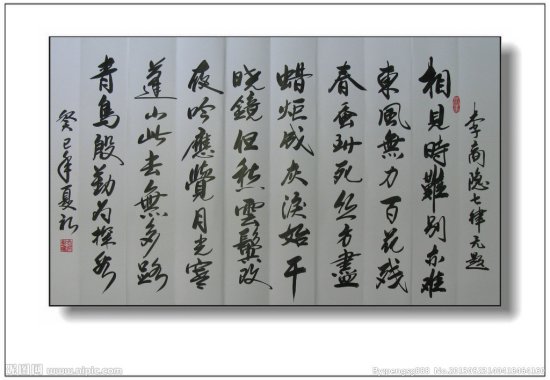 李商隐七律无题
相見時難别亦难
東風無力百花残
春蚕到死丝方盡
蜡炬成灰淚始干
晓鏡但愁雲鬓改
夜吟應覺月光寒
蓬山此去無多路
青鳥殷勤为探看
癸巳年夏
昵图网 www.nipic.com